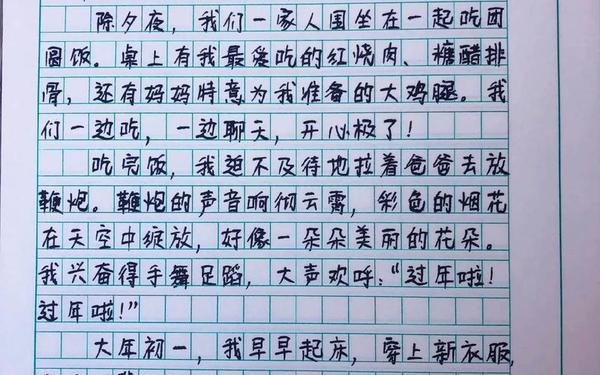 除夕夜，我们一家人围坐在一起吃团
圆饭。桌上有我最爱吃的红烧肉、糖醋排
骨，还有妈妈特意为我准备的大鸡腿。我
们一边吃，一边聊天，开心极了！
吃完饭，我迫不及待地拉着爸爸去放
鞭炮。鞭炮的声音响彻云霄，彩色的烟花
在天空中绽放，好像一朵朵美丽的花朵。
我兴奋得手舞足蹈，大声欢呼：“过年啦！
过年啦！”
大年初一，我早早起床，穿上新衣服，